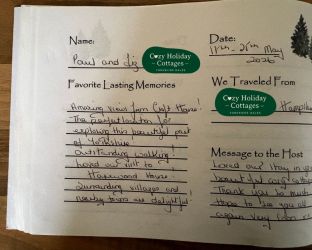 Name:
Paul and Liz
Cozy Holiday
- Cottages -
YORKSHIRE DALES
Date:
11th - 25th May
2026
Favorite Lasting Memories
Amazing views from Croft House!
The perfect location for
exploring this beautiful part
of Yorkshire.
Outstanding walking!
Loved our visit to
Harewood House!
Surrounding villages and
nearby towns are delightful!
We Traveled From
Cozy Holiday
- Cottages -
YORKSHIRE DALES
Message to the Host
Loved our stay in
beautiful cosy
Thank you so much
Hope to see you
again very soon